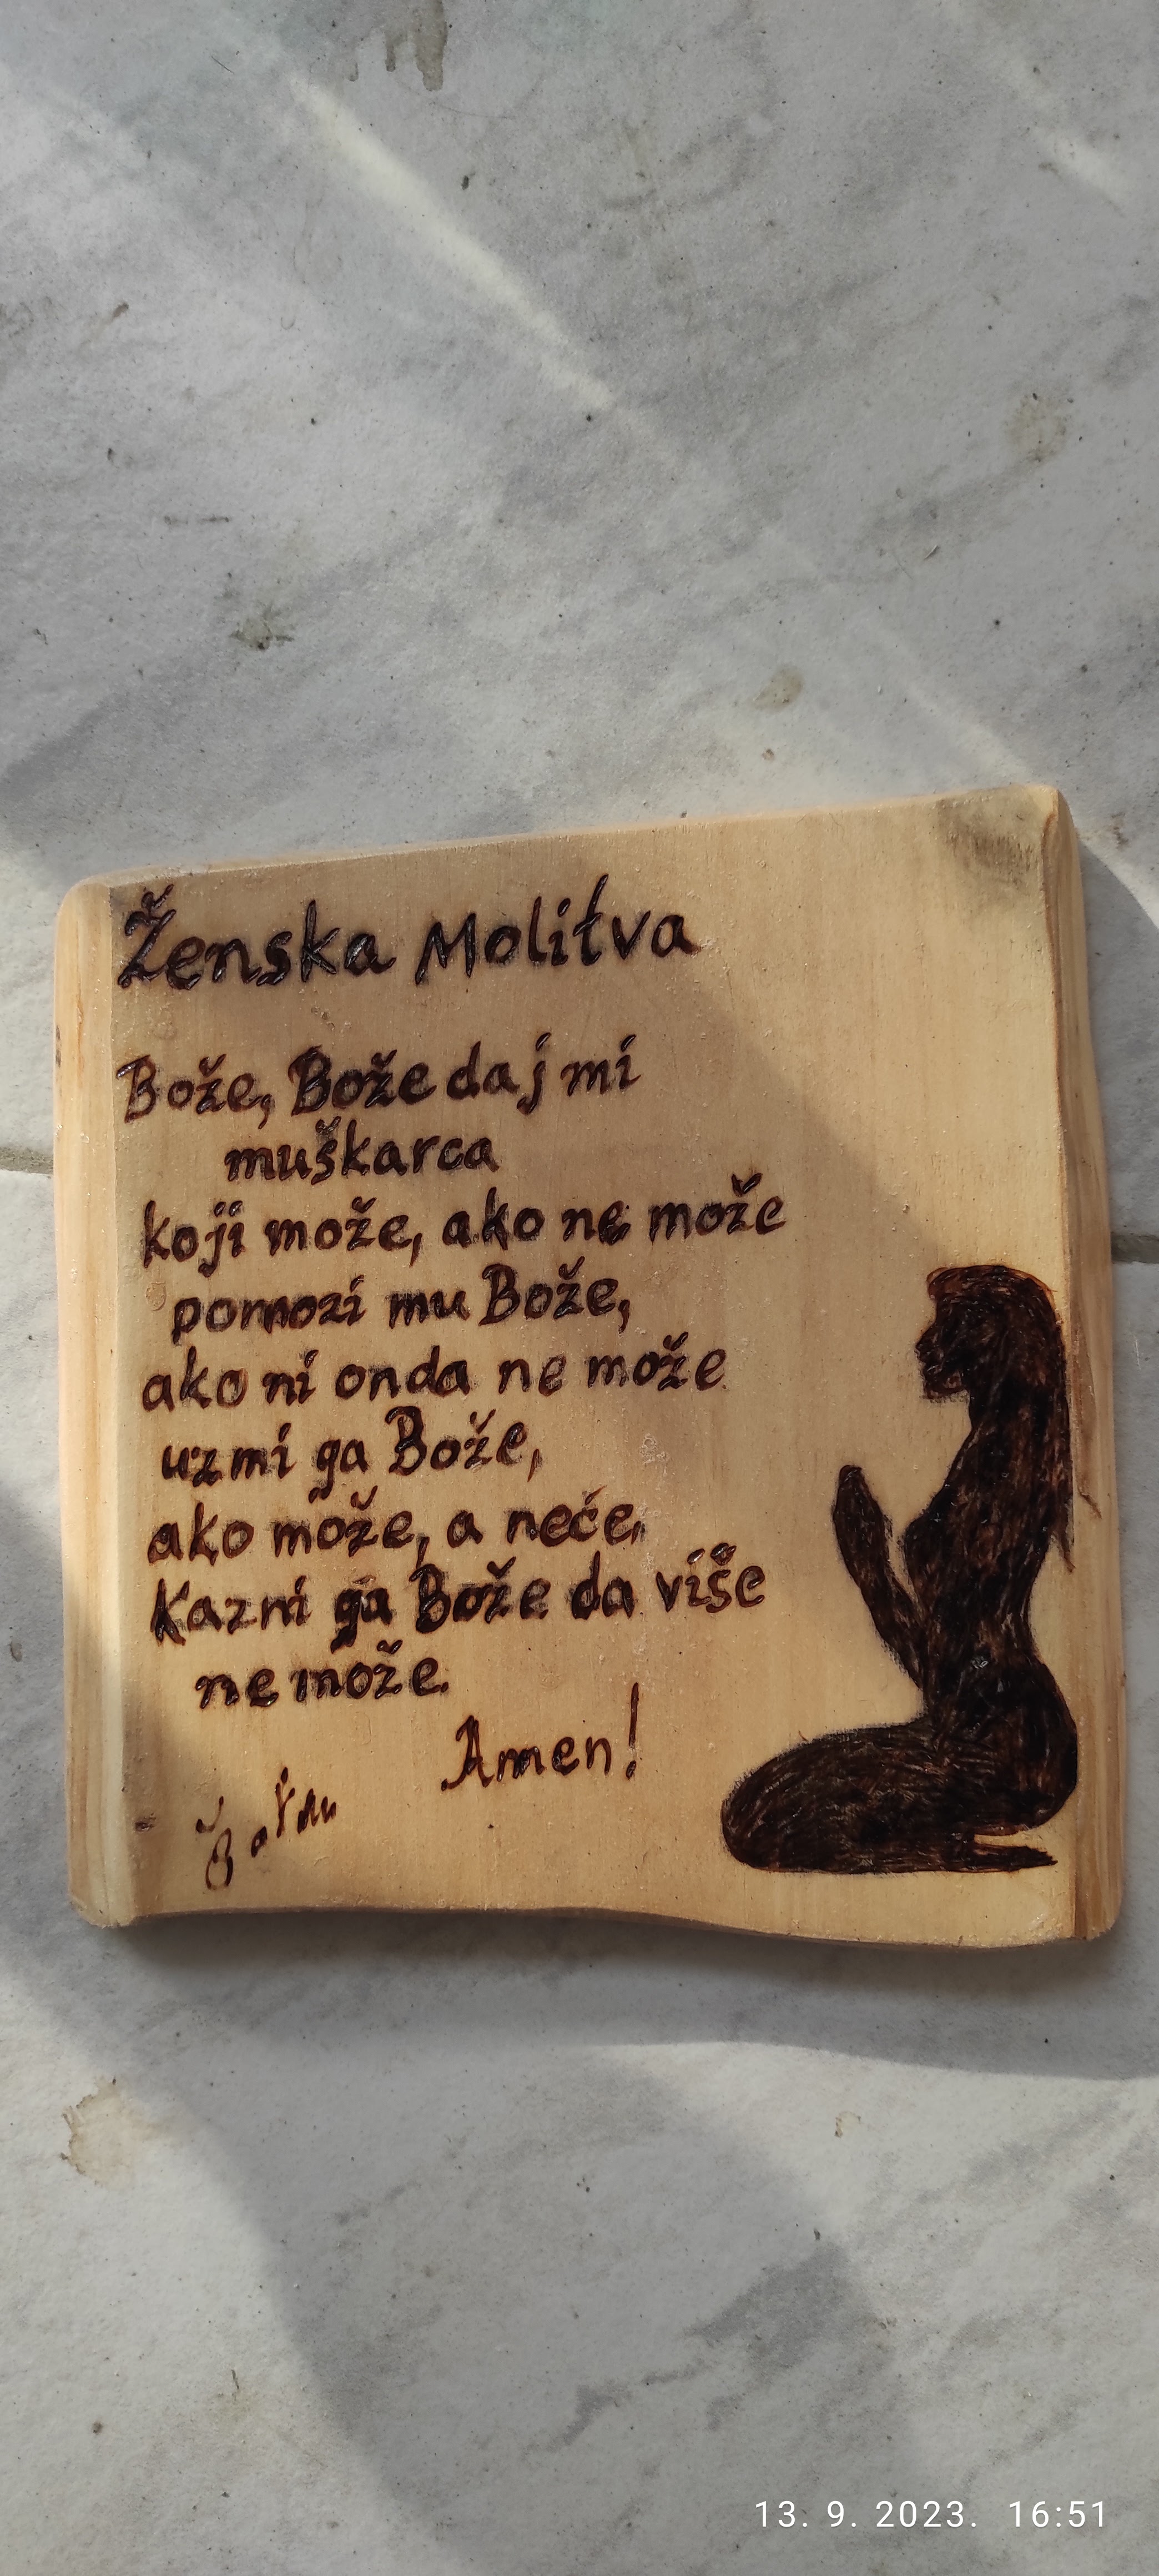 Ženska Molitva
Bože, Bože daj mi
muškarca
koji može, ako ne može
pomozi mu Bože,
ako ni onda ne može
uzmi ga Bože,
ako može, a neće,
Kazni ga Bože da više
ne može.
Amen!
13. 9. 2023. 16:51